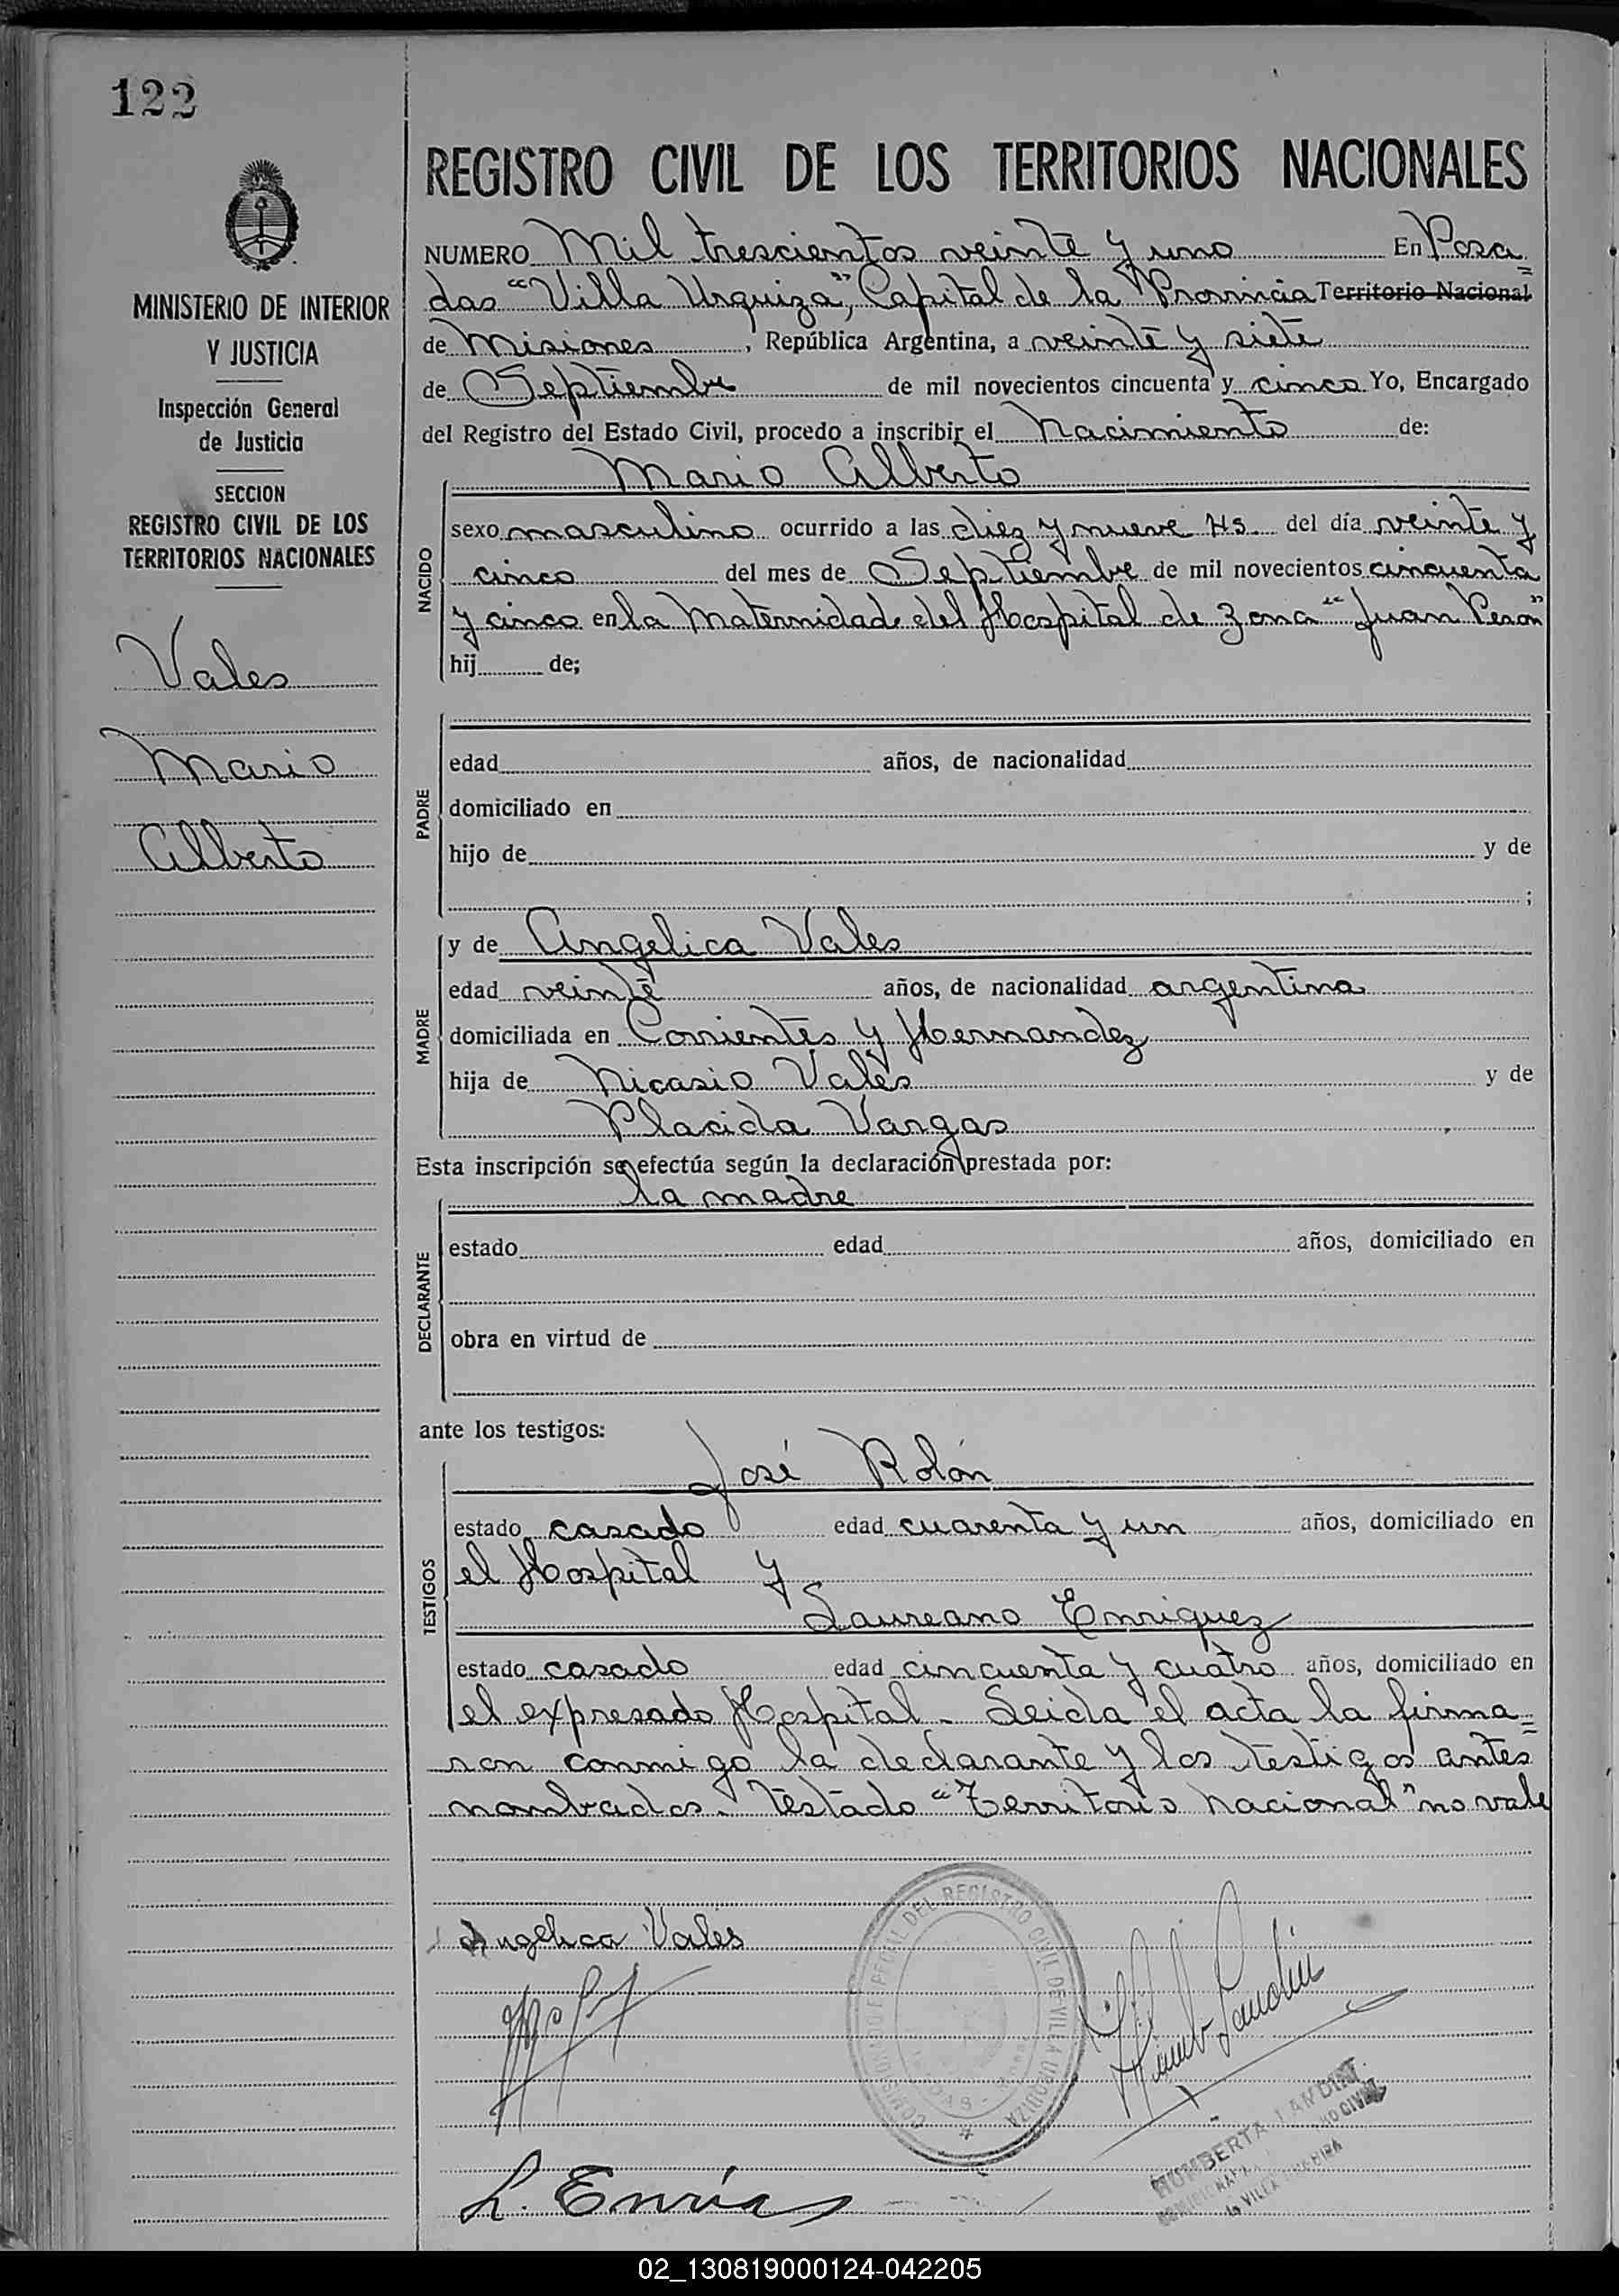 122
MINISTERIO DE INTERIOR
Y JUSTICIA
Inspección General
de Justicia
SECCION
REGISTRO CIVIL DE LOS
TERRITORIOS NACIONALES
Vales
Mario
Alberto
REGISTRO CIVIL DE LOS TERRITORIOS NACIONALES
NUMERO Mil trescientos veinte y uno En Posa
das "Villa Urquiza", Capital de la Provincia Territorio Nacional
de Misiones, República Argentina, a veinte y siete
de Septiembre de mil novecientos cincuenta y cinco Yo, Encargado
del Registro del Estado Civil, procedo a inscribir el Nacimiento de:
Mario Alberto
NACIDO
sexo masculino ocurrido a las diez y nueve Hs. del día veinte y
cinco del mes de Septiembre de mil novecientos cincuenta
y cinco en la Maternidad del Hospital de Zona "Juan Peron"
hij de;
PADRE
edad años, de nacionalidad
domiciliado en
hijo de y de
;
MADRE
y de Angelica Vales
edad veinte años, de nacionalidad argentina
domiciliada en Corrientes y Hernandez
hija de Nicasio Vales y de
Placida Vargas
Esta inscripción se efectúa según la declaración prestada por:
la madre
DECLARANTE
estado edad años, domiciliado en
obra en virtud de
ante los testigos:
José Rolón
TESTIGOS
estado casado edad cuarenta y un años, domiciliado en
el Hospital y
Laureano Enriquez
estado casado edad cincuenta y cuatro años, domiciliado en
el expresado Hospital. Leida el acta la firma=
ron conmigo la declarante y los testigos antes
nombrados. Testado "Territorio Nacional" no vale
Angelica Vales
COMISIONADO ESPECIAL DEL REGISTRO CIVIL DE VILLA URQUIZA
HUMBERTA LANDINI
L. Enrí
02_130819000124-042205